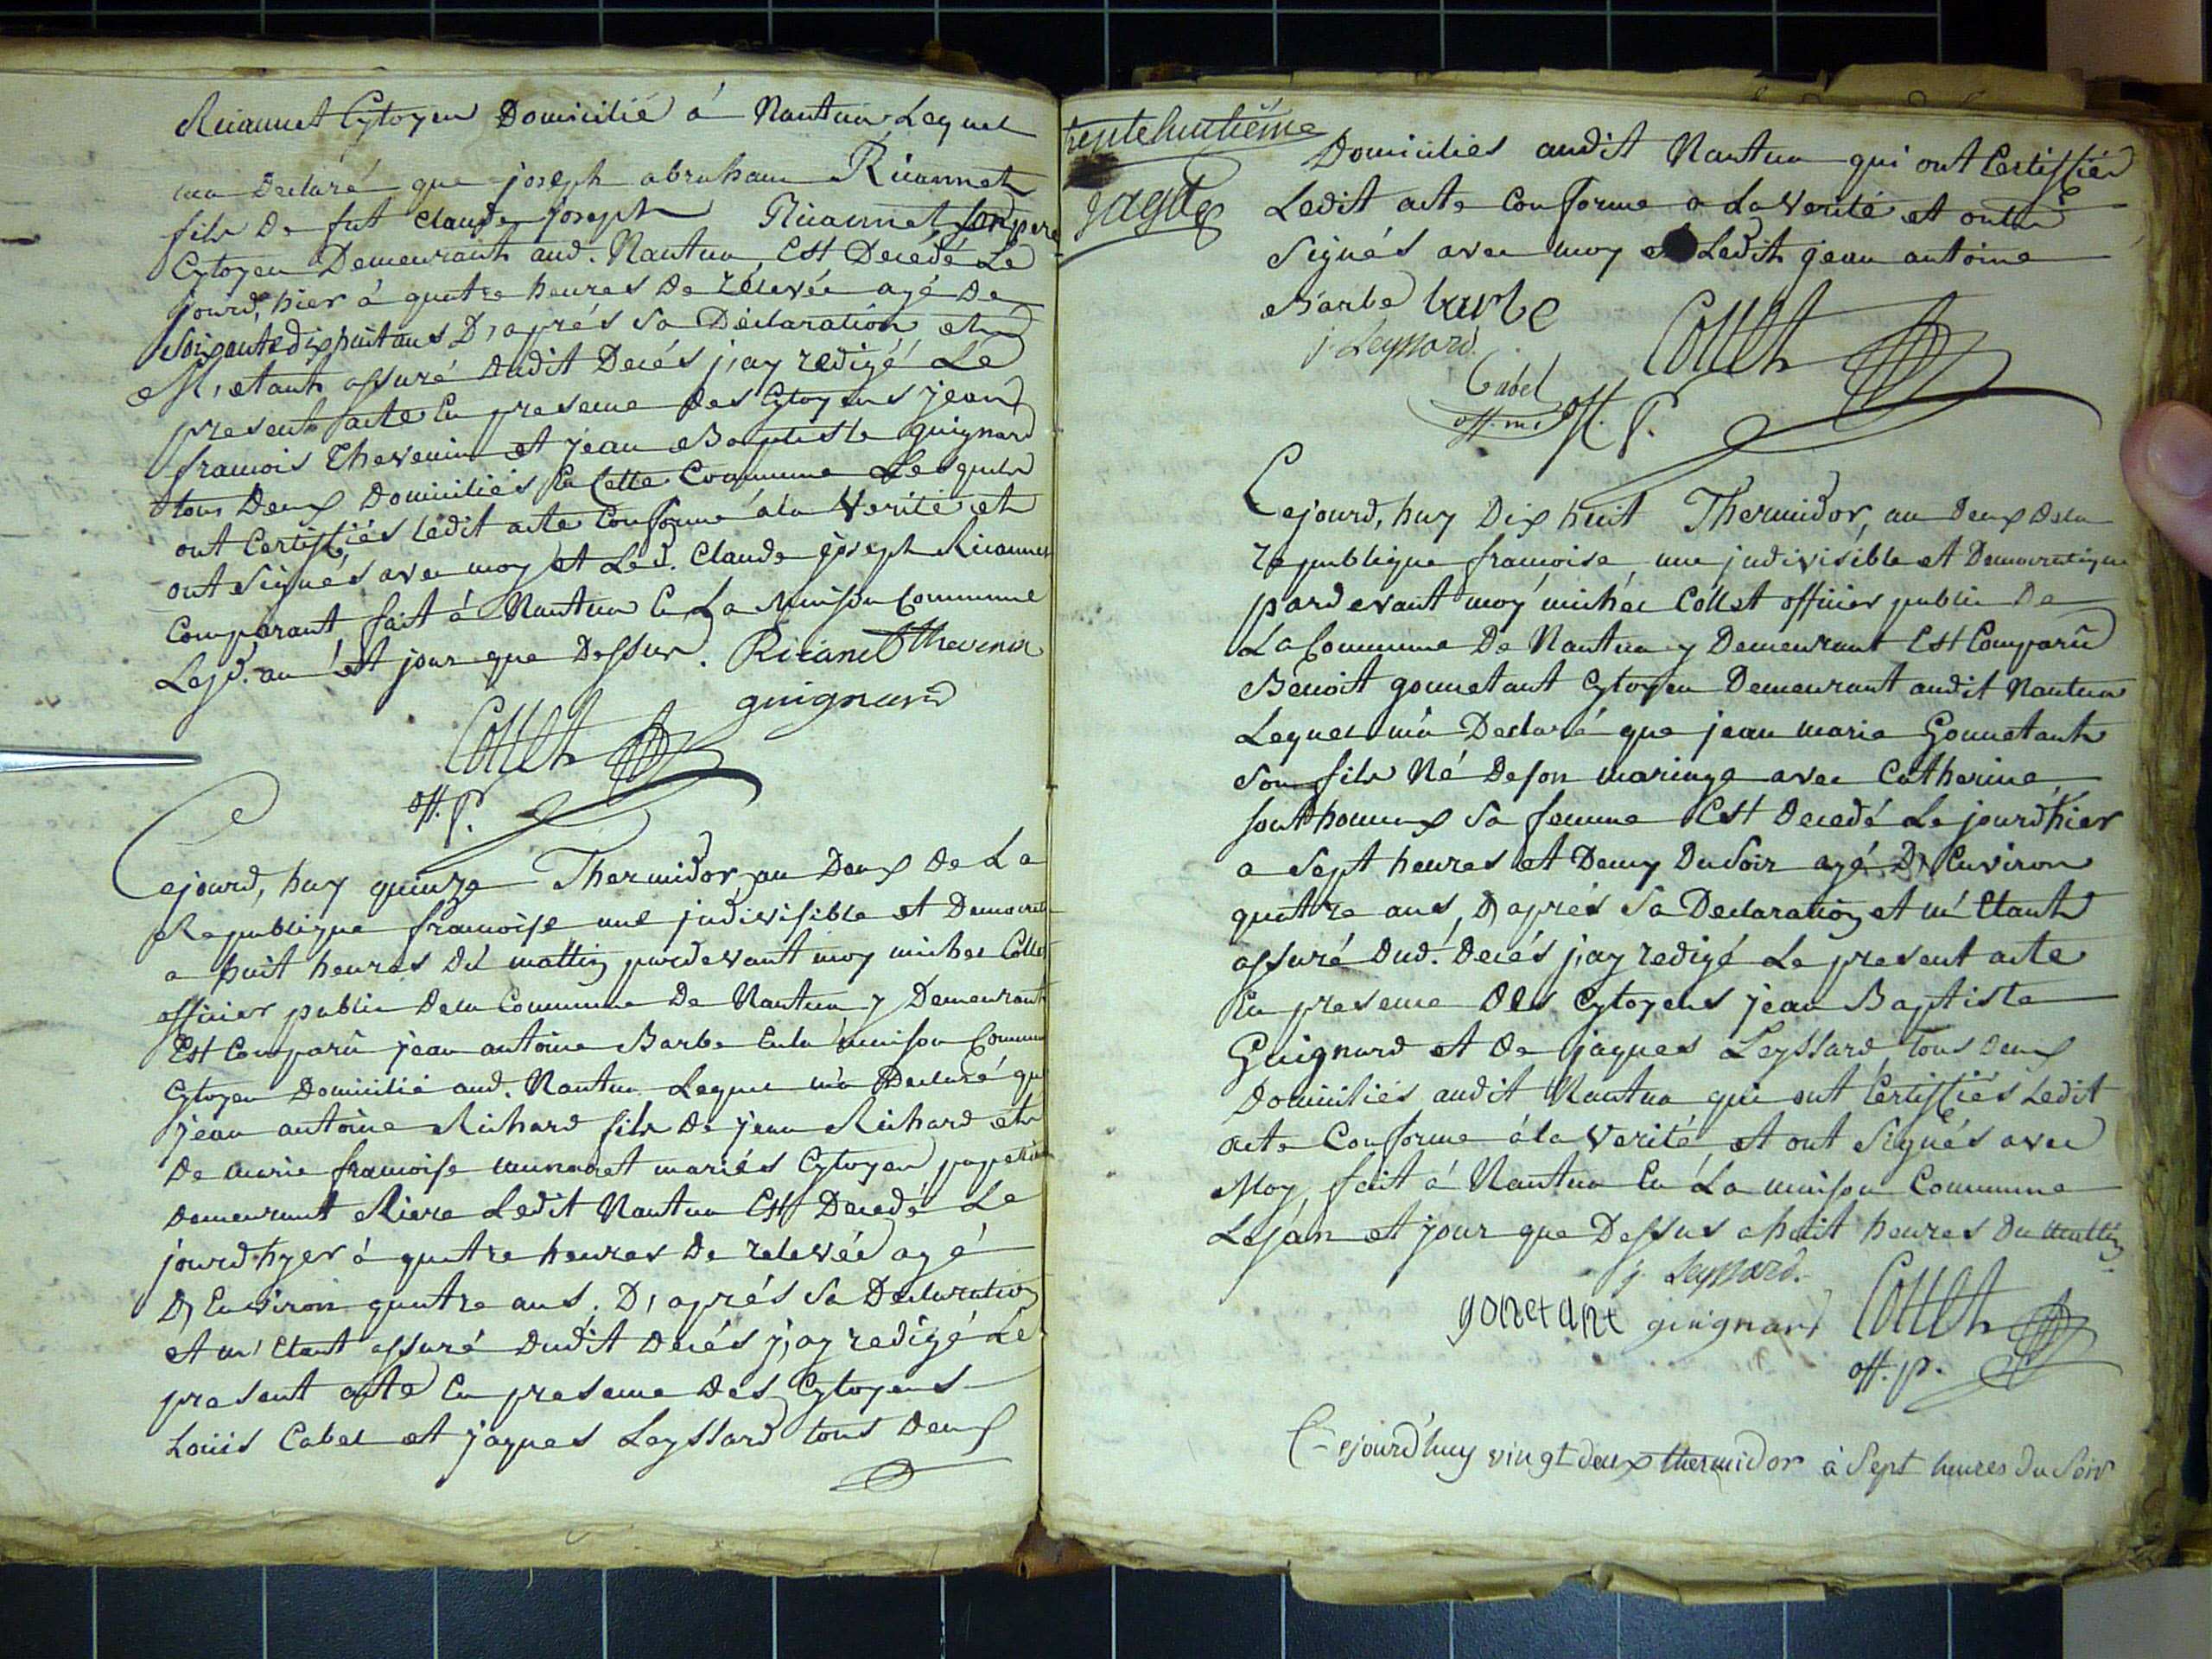 Ricannet Cytoyen Domicilié á Nantua Lequel
ma Declaré que joseph abraham Ricannet
fils De fut claude joseph Ricannet son pere
Cytoyen Demeurant aud. Nantua Est Decedé Le
jourd,hier á quatre heures De relevée agé De
Soixantedixhuit ans D,aprés Sa Déclaration et
M,etant assuré dudit Decés j,ay redigé Le
present acte En presence des Cytoyens jean
francois Thevenin et jean Baptiste guignard
tous Deux Domiciliés En Cette Commune Lesquels
ont Certiffiés ledit acte Conforme ála Verité et
ont Signés avec moy et Led. Claude joseph Ricannet
Comparant fait á Nantua En La Maison Commune
Lesd. an et jour que Dessus. Ricanet thevenin
guignard
Collet
off. P.
Cejourd,huy quinze Thermidor, an Deux De La
Republique francoise une judivisible et Democrati
a huit heures du mattin pardevant moy michel Collet
officier public Dela Commune De Nantua y Demeurant
Est Comparû jean antoine Barbe Enla maison Commune
Cytoyen Domicilié aud. Nantua Lequel m'a Declaré que
jean antoine Richard fils De jean Richard et
De marie francoise munaret mariés Cytoyen papetier
demeurant Riere Ledit Nantua Est Decedé Le
jourdhyer á quatre heures De relevée agé
D,Environ quatre ans. D,aprés Sa Declaration
et m'Etant assuré Dudit Decés j,ay redigé Le
present acte En presence Des Cytoyens
Loüis Cabel et jaques Leyssard tous deux
trentehuitiéme
page
Domiciliés audit Nantua qui ont Certiffiés
Ledit acte Conforme a La Verité et ont
Signés avec moy et Ledit jean antoine
Barbe barbe
j. Leyssard.
Cabel Collet
off. m. off. P.
Cejourd,huy Dix huit Thermidor, an Deux Dela
republique francoise une judivisible et Democratique
pardevant moy michel Collet officier public De
La Commune De Nantua y Demeurant Est Comparû
Benoit gonnetant Cytoyen Demeurant audit Nantua
Lequel má Declaré que jean marie Gonnetant
Son fils Né Deson mariage avec Catherine
Sonthonnax Sa femme Est Decedé Le jourdhier
a Sept heures et Demy Du Soir agé D,Environ
quatre ans, D,aprés Sa Declaration et m'Etant
assuré Dud. Decés j,ay redigé Le present acte
En presence Des Cytoyens jean Baptiste
Guignard et De jaques Leyssard tous deux
Domiciliés audit Nantua qui ont Certiffiés Ledit
acte Conforme ála Verité, et ont Signés avec
Moy, fait á Nantua En La maison Commune
Lesán et jour que Dessus a huit heures Du mattin
j. Leyssard.
gonetant guignard Collet
off. p.
Cejourd'huy vingt deux thermidor à Sept heures du Soir